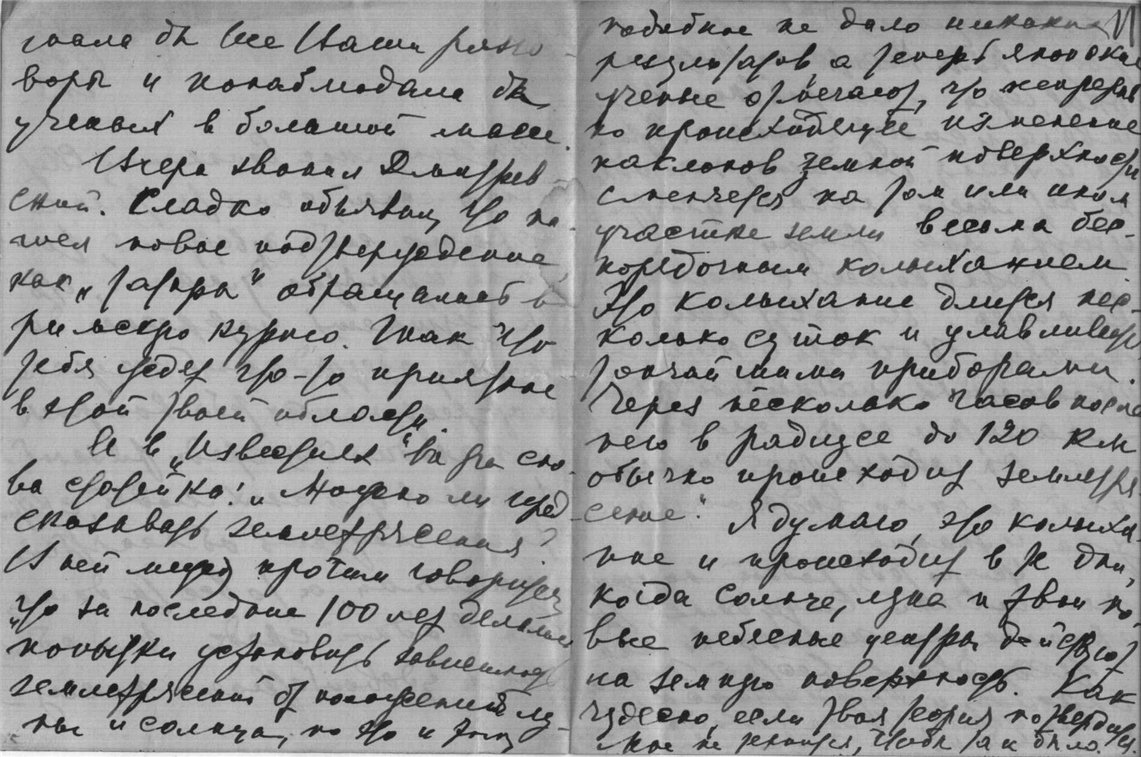 шала бы все Ваши разго-
воры и понаблюдала бы
ученых в большой массе.
Вчера звонил Дмитрев-
ский. Сладко объявил, что на-
шел новое подтверждение,
как „татары“ обращались в
рыльскую курию. Так что
тебя ждет что-то приятное
в этой твоей области.
А в „Известиях“ сно-
ва статейка: „Можно ли пред-
сказывать землетрясения?
В ней между прочим говорится,
„что за последние 100 лет делались
попытки установить зависимость
землетрясений от положений лу-
ны и солнца, но это и тому
подобное не дало никаких
результатов, а теперь японские
ученые отмечают, что непрерыв-
но происходящее изменение
наклонов земной поверхности
сменяется на том или ином
участке земли весьма бес-
порядочным колыханием.
Это колыхание длится нес-
колько суток и улавливается
тончайшими приборами.
Через несколько часов после
него в радиусе до 120 км
обычно происходит землетря-
сение“. Я думаю, это колыха-
ние и происходит в те дни,
когда солнце, луна и твои но-
вые небесные центры действуют
на земную поверхность. Как
чудесно, если твоя теория подтвердится.
Мне не терпится, чтобы так и было.